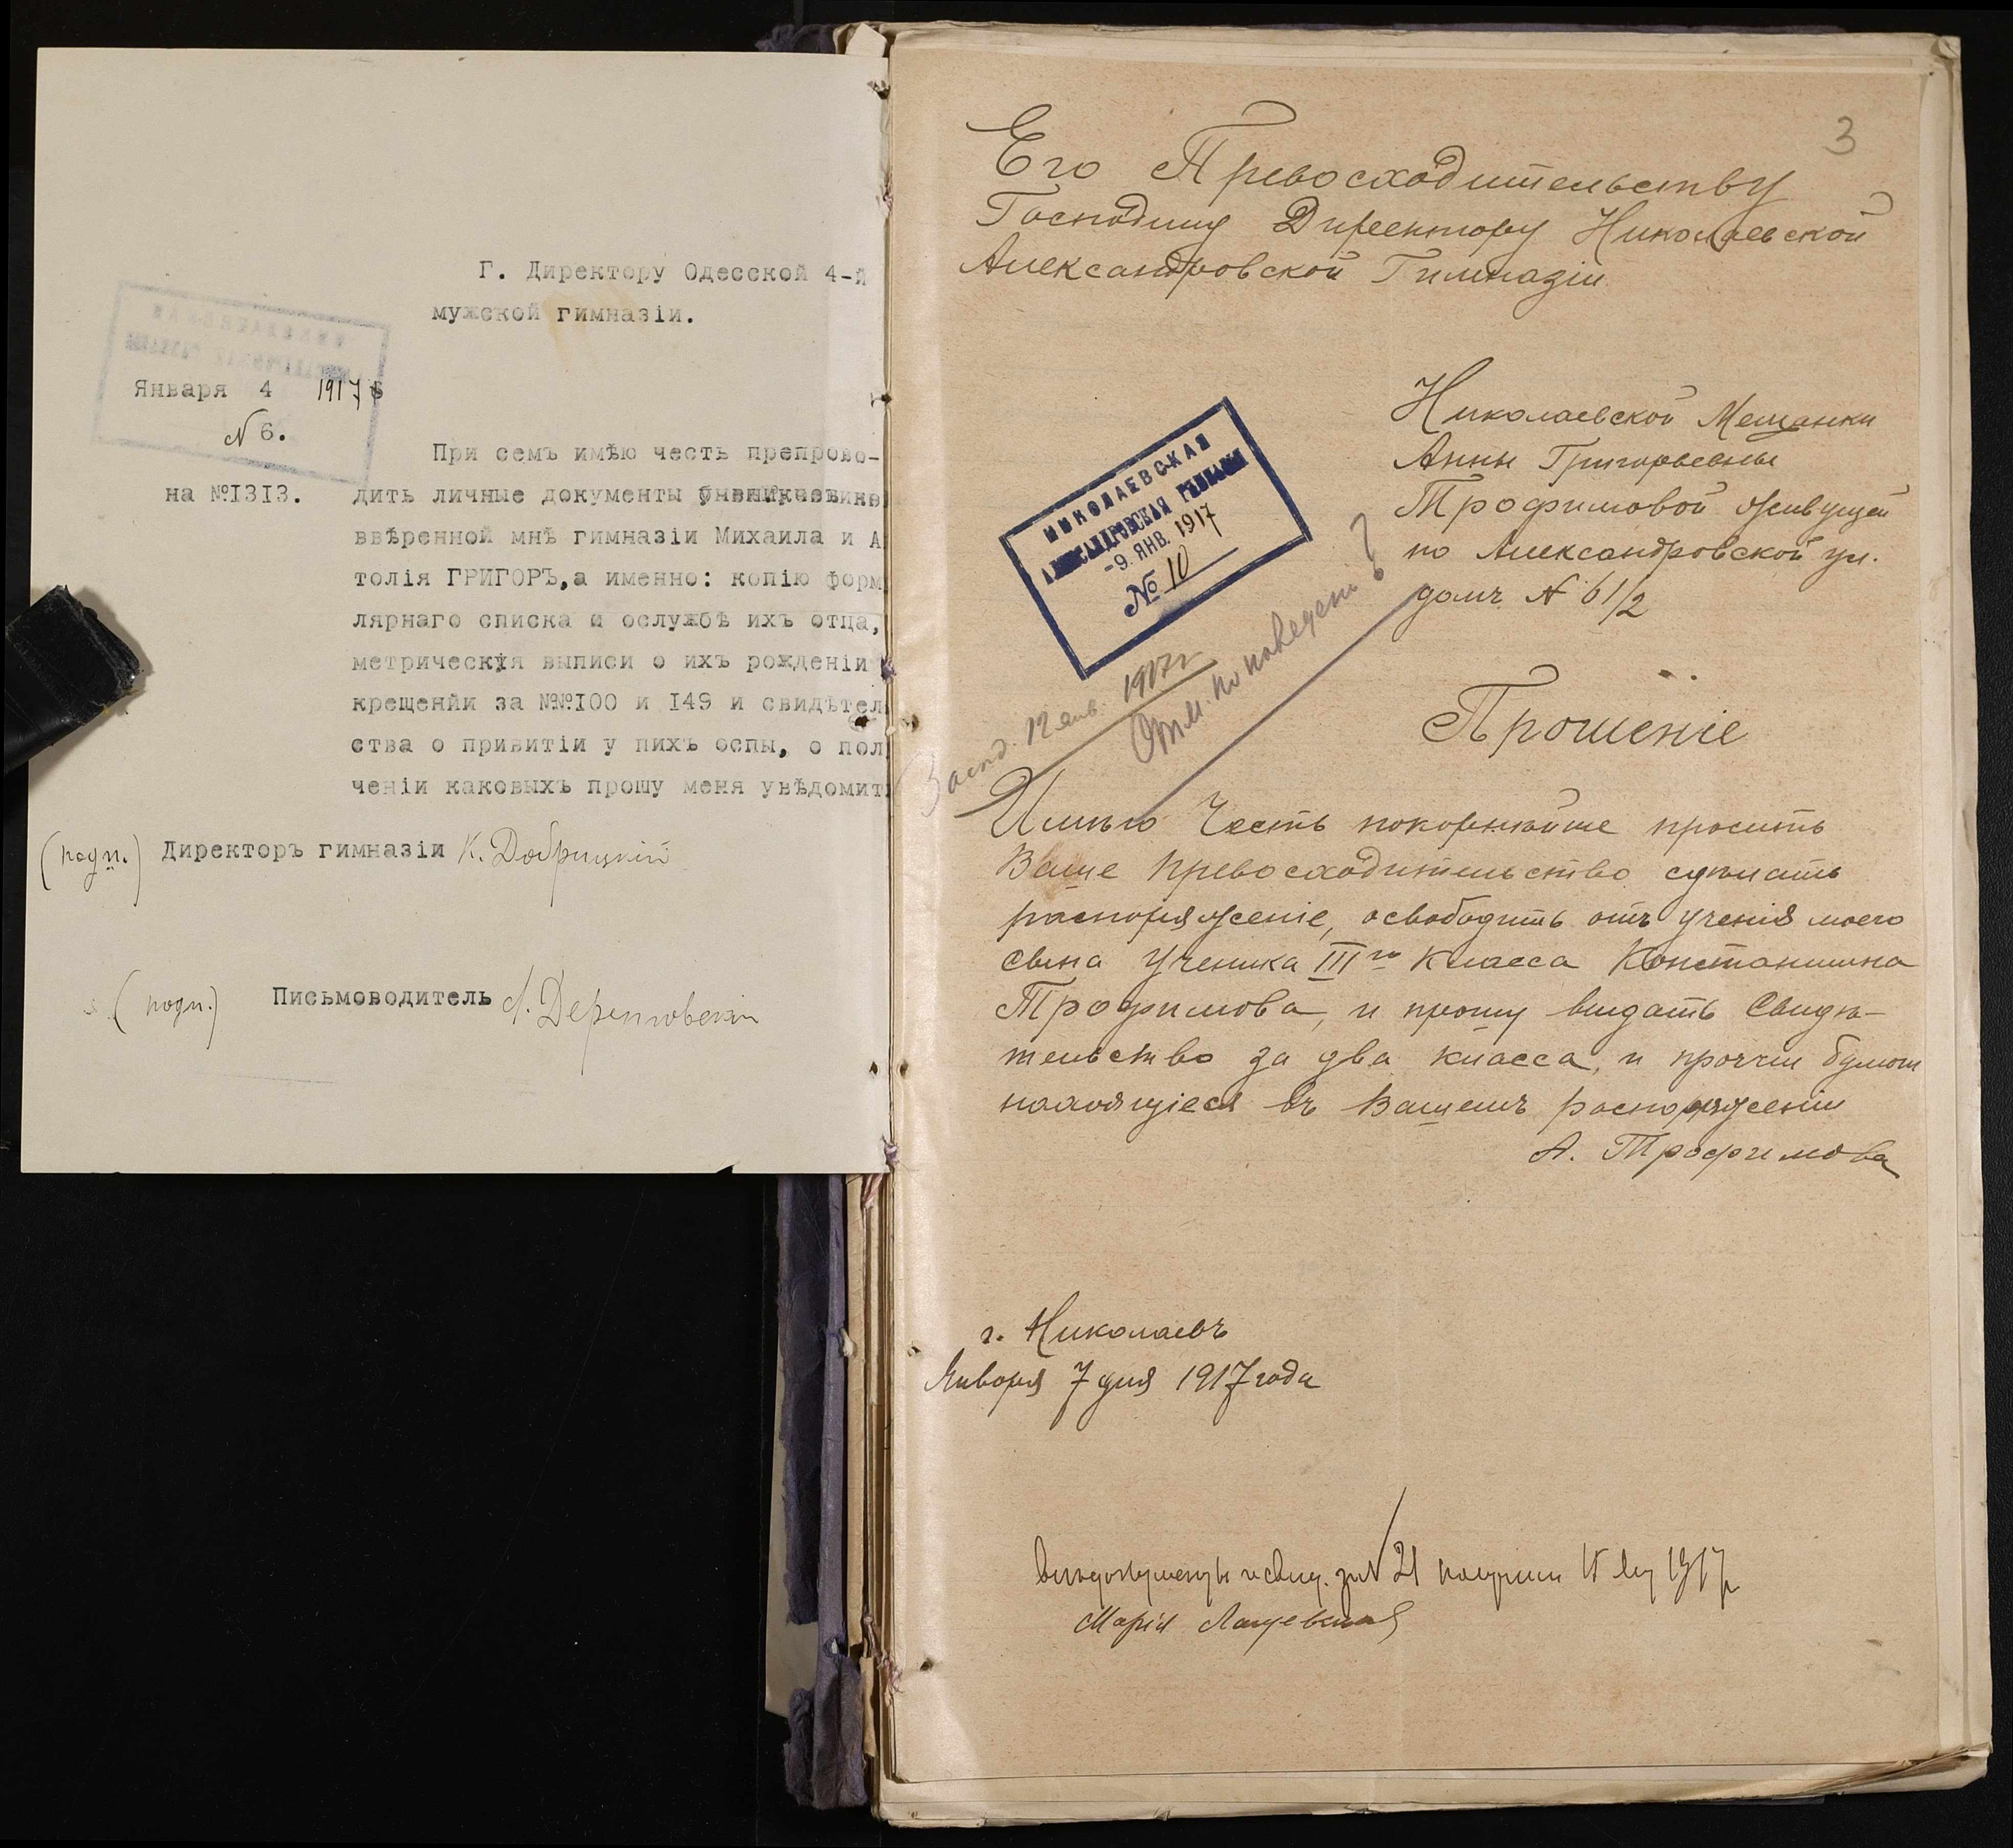 Г. Директору Одесской 4-й
мужской гимназіи.
Января 4 1917
№ 6.
на №1313.
При семъ имѣю честь препрово-
дить личные документы
ввѣренной мнѣ гимназіи Михаила и А
толія ГРИГОРЪ,а именно: копію форм
лярнаго списка и ослужбѣ ихъ отца,
метрическія выписи о ихъ рожденіи
крещенйи за №№100 и 149 и свидѣтел
ства о привитіи у нихъ оспы, о пол
ченіи каковыхъ прошу меня увѣдомит
(подп.) Директоръ гимназіи К. Добрицкій
(подп.) Письмоводитель
3
Его Превосходительству
Господину Директору Николаевской
Александровской Гимназіи
Николаевской Мещанки
Анны Григорьевны
Трофимовой живущей
по Александровской ул.
домъ № 61/2
НИКОЛАЕВСКАЯ
АЛЕКСАНДРОВСКАЯ ГИМНАЗІЯ
-9. ЯНВ. 1917
№ 10
Засѣд. 12 янв. 1917г
Отм. по поведен?
Прошеніе
Имѣю Честь покорнѣйше просить
Ваше Превосходительство сдѣлать
распоряженіе, освободить отъ ученія моего
сына Ученика IIIго Класса Константина
Трофимова, и прошу выдать Свидѣ-
тельство за два класса, и прочіи бумаги
находящіеся въ Вашемъ распоряженіи
А. Трофимова
г. Николаевъ
Января 7 дня 1917 года
документы и свид. за № 21 получил 1917
Марія